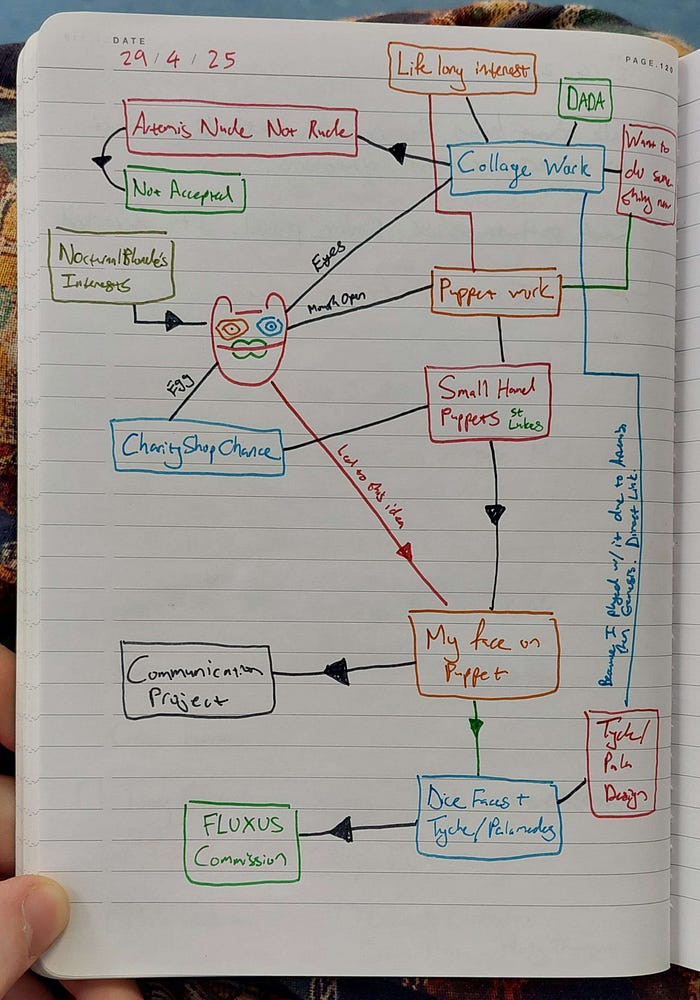 DATE
29/4/25
PAGE.120
Life long interest
DADA
Artemis Nude Not Rude
Collage Work
Want to
do some
thing new
Not Accepted
NocturnalBlonde's
Interests
Eyes
Mouth Open
Puppet work
Egg
Small Hand
Puppets St
Lukes
Charity Shop Chance
Led to this idea
Because I played w/ it due to Artemis
then Genesis. Direct Link.
My face on
Puppet
Communication
Project
Tyche/
Pala
Design
Dice Faces +
Tyche/Palamedes
FLUXUS
Commission